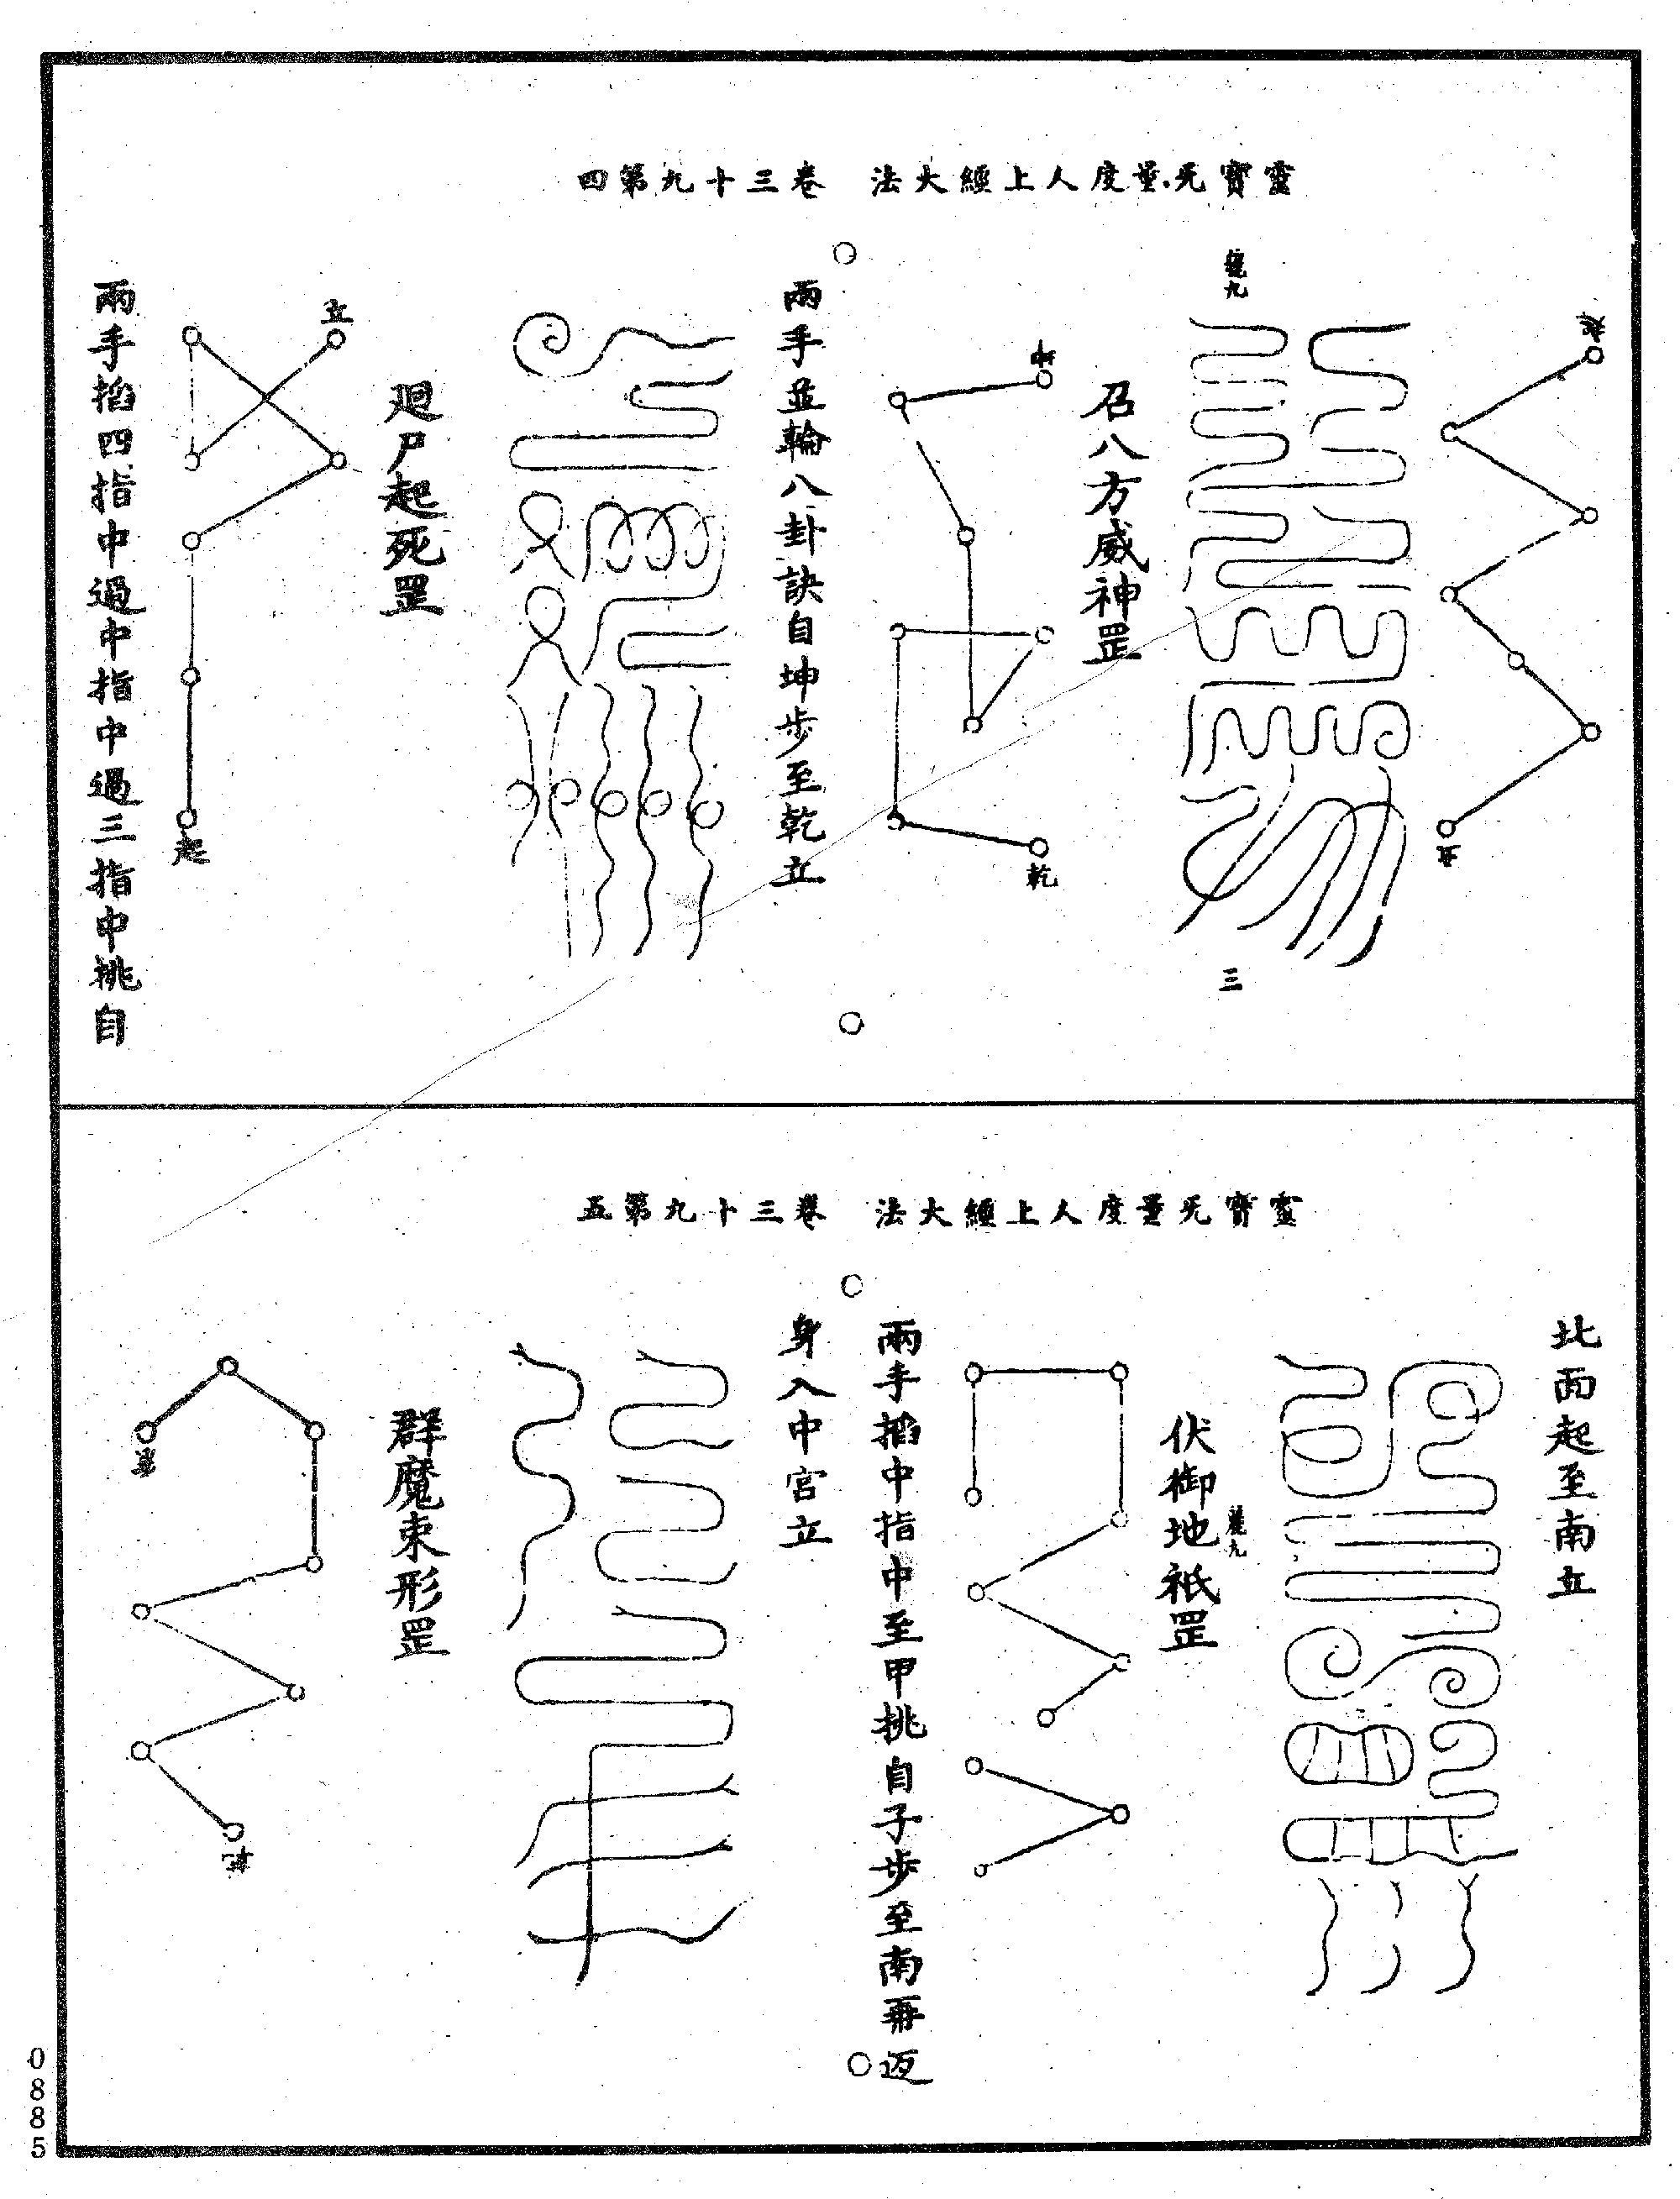 靈寶无量度人上經大法　卷三十九第四
虢九
三
召八方威神罡
乾
兩手並輪八卦訣自坤步至乾立
廻尸起死罡
立
起
兩手掐四指中過中指中過三指中挑自
靈寶无量度人上經大法　卷三十九第五
北面起至南立
伏御地祇罡
兩手掐中指中至甲挑自子步至南再返
身入中宮立
群魔束形罡
0885